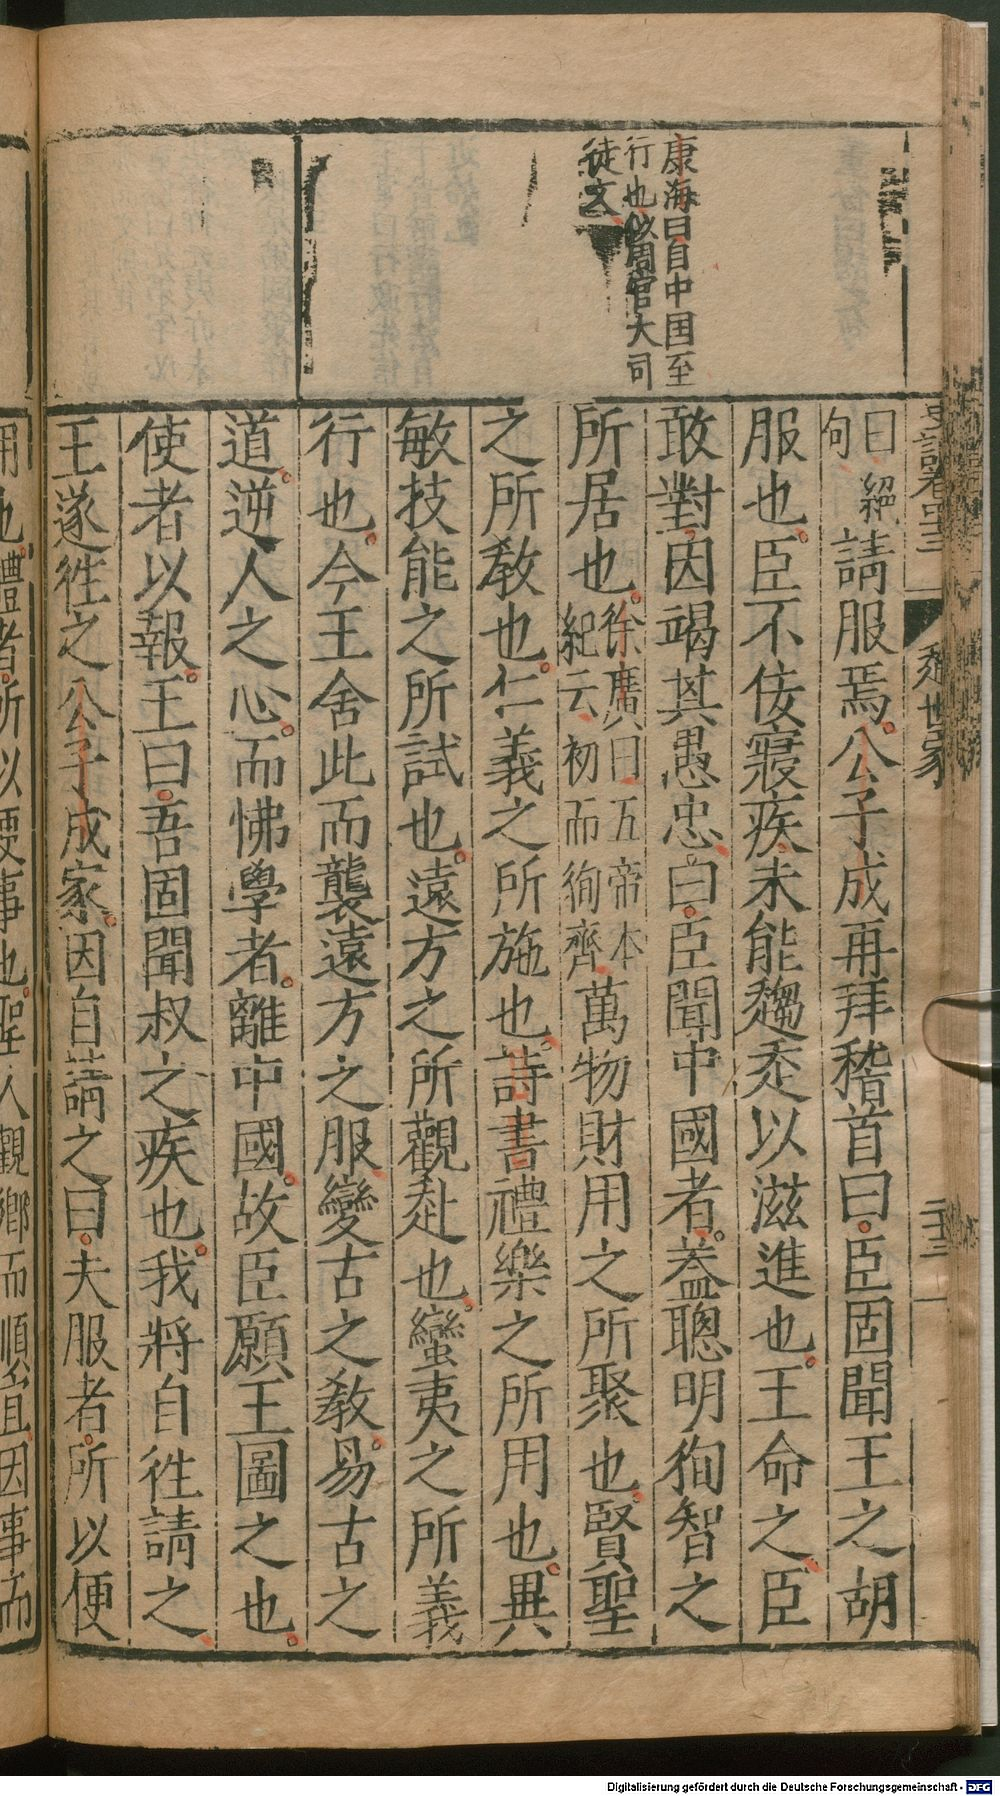 康海曰自中国至
行也似周官大司
徒文
史記卷四三
趙世家
二十三
曰絕
句
請服焉公子成再拜稽首曰臣固聞王之胡
服也臣不佞寢疾未能趨走以滋進也王命之臣
敢對因竭其愚忠曰臣聞中國者蓋聰明徇智之
所居也
徐廣曰五帝本
紀云初而徇齊
萬物財用之所聚也賢聖
之所敎也仁義之所施也詩書禮樂之所用也異
敏技能之所試也遠方之所觀赴也蠻夷之所義
行也今王舍此而襲遠方之服變古之敎易古之
道逆人之心而怫學者離中國故臣願王圖之也
使者以報王曰吾固聞叔之疾也我將自徃請之
王遂徃之公子成家因自請之曰夫服者所以便
用也禮者所以便事也聖人觀鄉而順宜因事而
Digitalisierung gefördert durch die Deutsche Forschungsgemeinschaft - DFG